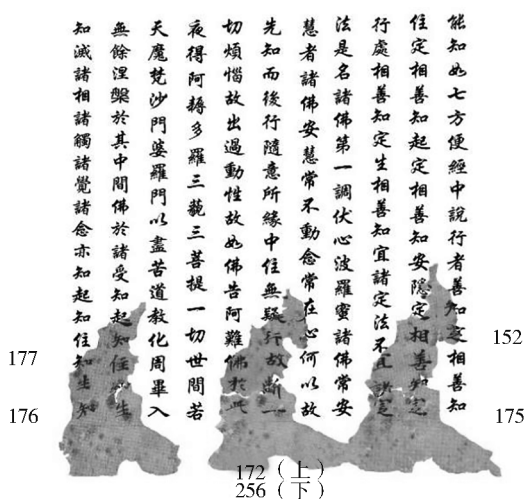 能知如七方便經中說行者善知定相善知
住定相善知起定相善知安隱定相善知定
行處相善知定生相善知宜諸定法不宜諸定
法是名諸佛第一調伏心波羅蜜諸佛常安
慧者諸佛安慧常不動念常在心何以故
先知而後行隨意所緣中住無疑行故斷一
切煩惱故出過動性故如佛告阿難佛於此
夜得阿耨多羅三藐三菩提一切世間若
天魔梵沙門婆羅門以盡苦道教化周畢入
無餘涅槃於其中間佛於諸受知起知住知生
知滅諸相諸觸諸覺諸念亦知起知住知生知
152
175
177
176
172（上）
256（下）